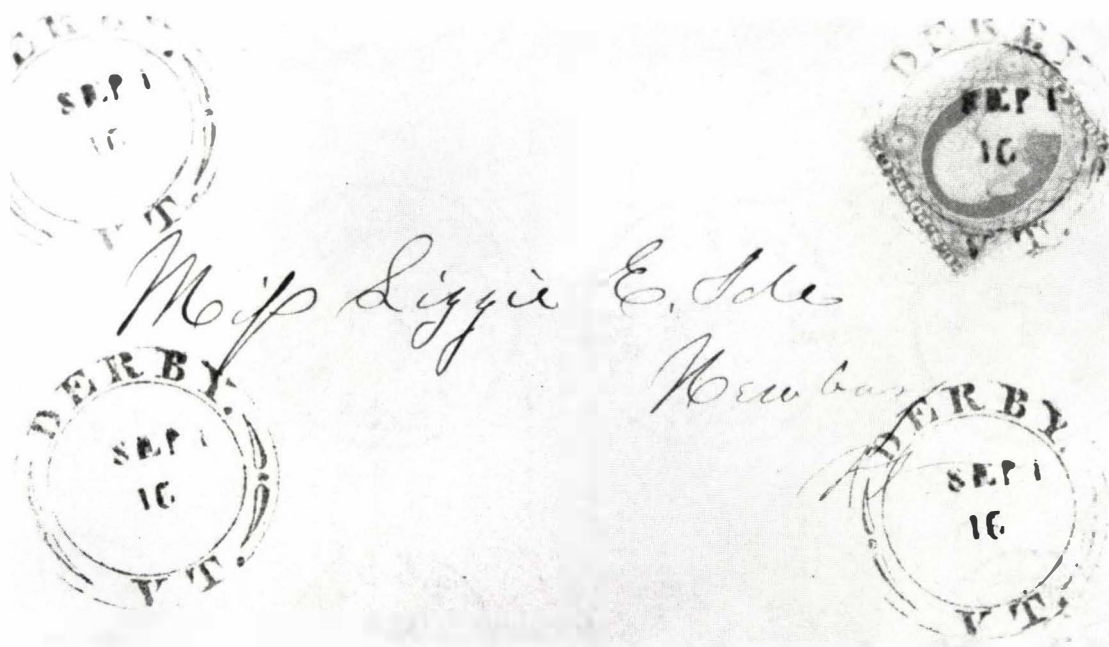 DERBY.
SEP 1
16
VT.
DERBY
SEP 1
16
VT.
Miss Lizzie E. Ide
DERBY.
SEP 1
16
VT.
DERBY
SEP 1
16
VT.